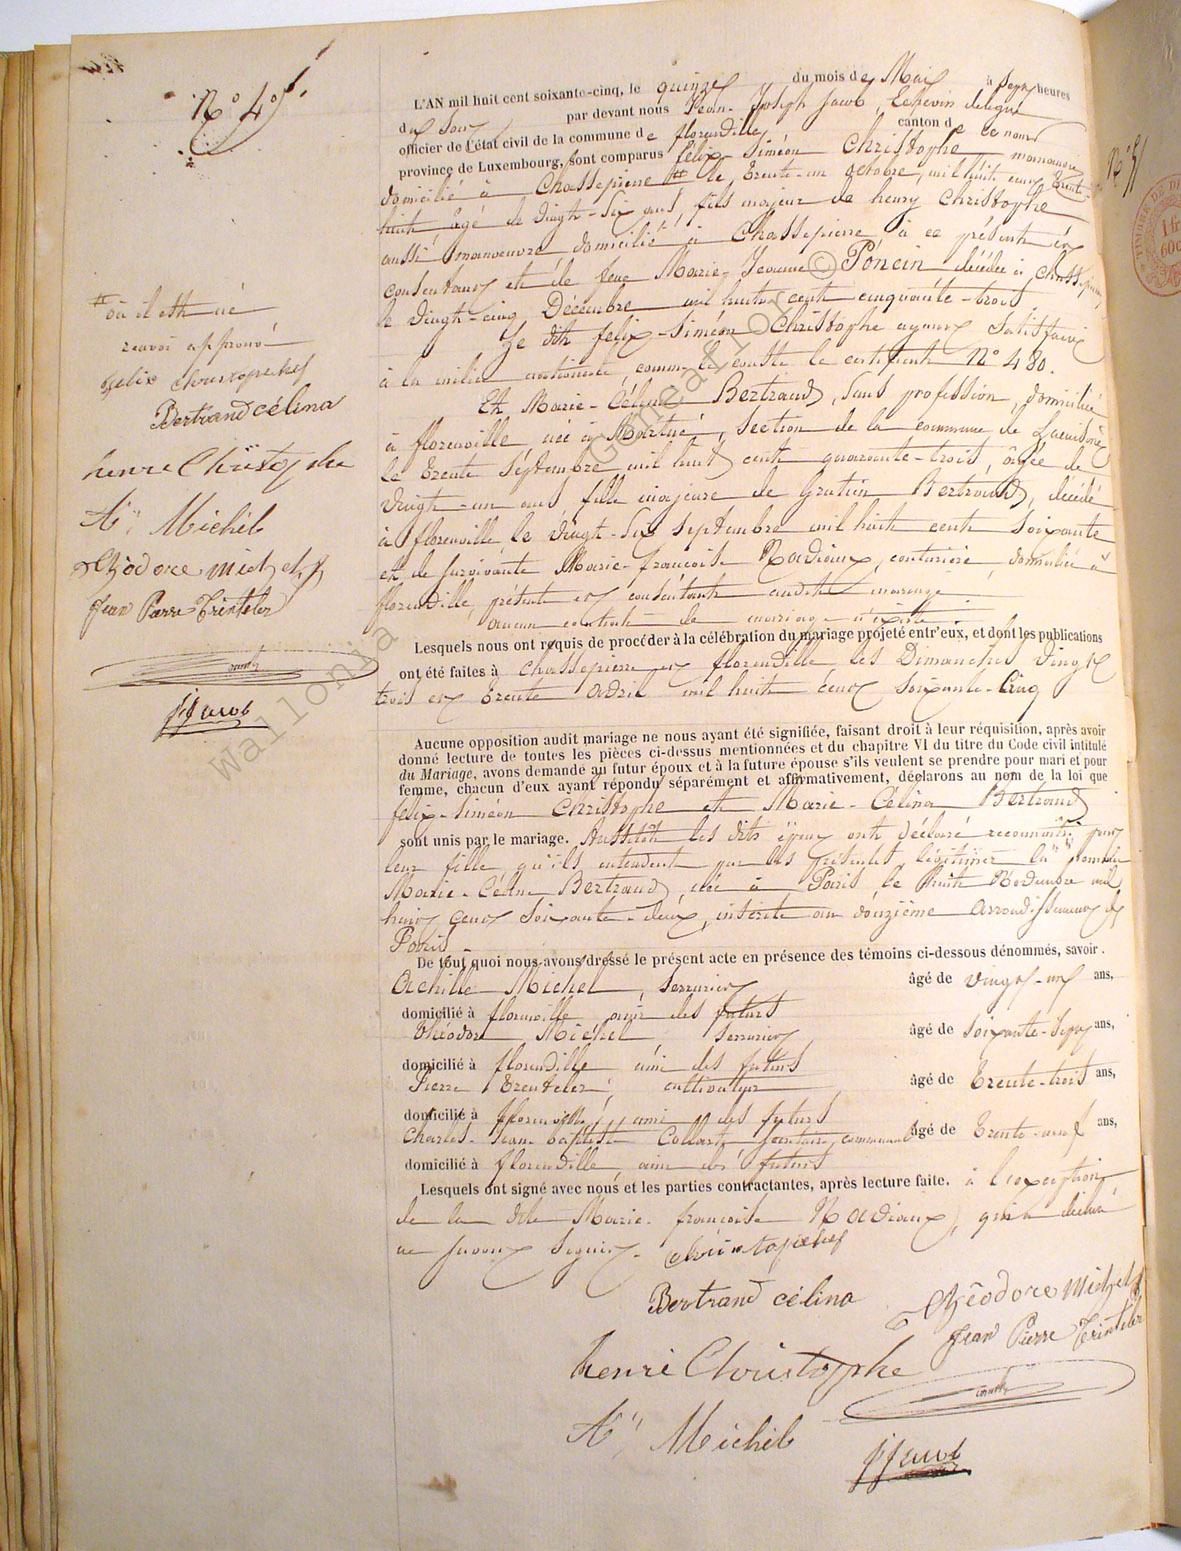 N° 4
L'AN mil huit cent soixante-cinq, le quinze du mois de Mai à sept heures
du soir par devant nous Jean-Joseph Jacob, Echevin délégué
officier de l'état civil de la commune de florenville canton de ce nom
province de Luxembourg, sont comparus felix-Siméon Christophe manoeuvre
domicilié à Chassepierre # le trente-un octobre, mil huit cent trente-
huit âgé de vingt-six ans, fils majeur de henry Christophe
aussi manoeuvre domicilié à Chassepierre, à ce présent et
consentant et de feue Marie-Jeanne Poncin décédée à Chassepierre,
le vingt-cinq Décembre mil huit cent cinquante-trois
Le dit felix-Siméon Christophe ayant satisfait
à la milice nationale, comme le constate le certificat N° 480.
Et Marie-Célina Bertrand, sans profession, domiciliée
à florenville née à Martué, section de la commune de Lacuisine
le trente Septembre mil huit cent quarante-trois, âgée de
vingt-un ans fille majeure de Gratien Bertrand, décédé
à florenville, le vingt-six septembre mil huit cent soixante
et de survivante Marie-françoise Nadiaux, couturière, domiciliée à
florenville, présente et consentante audit mariage
aucun contrat de mariage n'existe.
Lesquels nous ont requis de procéder à la célébration du mariage projeté entr'eux, et dont les publications
ont été faites à Chassepierre et florenville les Dimanches vingt
trois et trente avril mil huit cent soixante-cinq
Aucune opposition audit mariage ne nous ayant été signifiée, faisant droit à leur réquisition, après avoir
donné lecture de toutes les pièces ci-dessus mentionnées et du chapitre VI du titre du Code civil intitulé
du Mariage, avons demandé au futur époux et à la future épouse s'ils veulent se prendre pour mari et pour
femme, chacun d'eux ayant répondu séparément et affirmativement, déclarons au nom de la loi que
felix-Siméon Christophe et Marie-Célina Bertrand
sont unis par le mariage. Aussitôt les dits époux ont déclaré reconnaître pour
leur fille qu'ils entendent par les présentes légitimer la nommée
Marie-Céline Bertrand, née à Paris le huit Novembre mil
huit cent soixante-deux, inscrite au douzième arrondissement de
Paris
De tout quoi nous avons dressé le présent acte en présence des témoins ci-dessous dénommés, savoir.
Achille Michel, serrurier âgé de vingt-neuf ans,
domicilié à florenville ami des futurs
théodore Michel, serrurier âgé de soixante-sept ans,
domicilié à florenville ami des futurs
Pierre Trenteler, cultivateur âgé de trente-trois ans,
domicilié à florenville, ami des futurs
Charles-Jean-baptiste Collart, secrétaire communal âgé de trente-neuf ans,
domicilié à florenville, ami des futurs
Lesquels ont signé avec nous et les parties contractantes, après lecture faite. à l'exception
de la dite Marie-françoise Nadiaux, qui a déclaré
ne savoir signer.
Bertrand célina
théodore michel
Jean Pierre Trinteler
henri Christophe
A. Michel
JJacob
# où il est né
renvoi approuvé
felix
Bertrand célina
henri Christophe
A. Michel
théodore michel
Jean Pierre Trinteler
JJacob
Wallonia © Genealfor